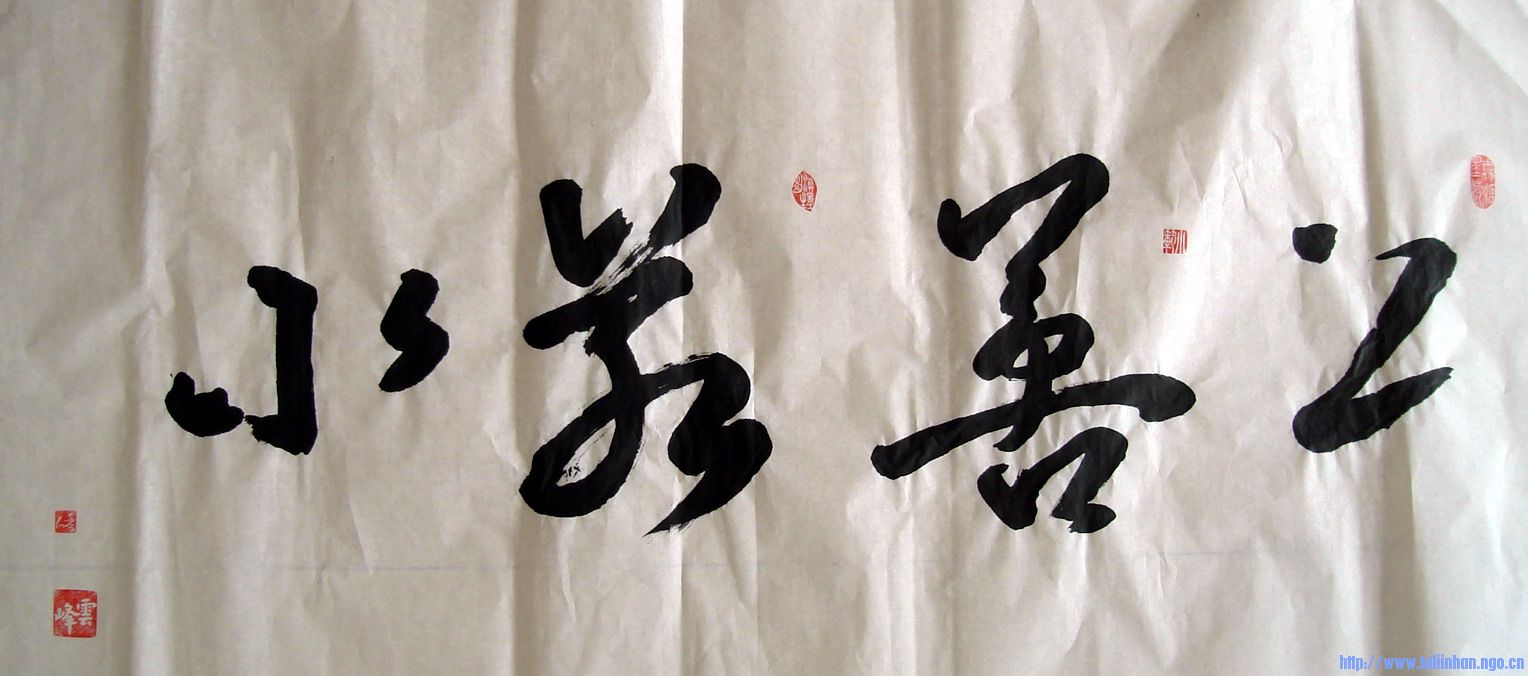 上善若水
雲峰
http://www.taliinhan.ngo.cn